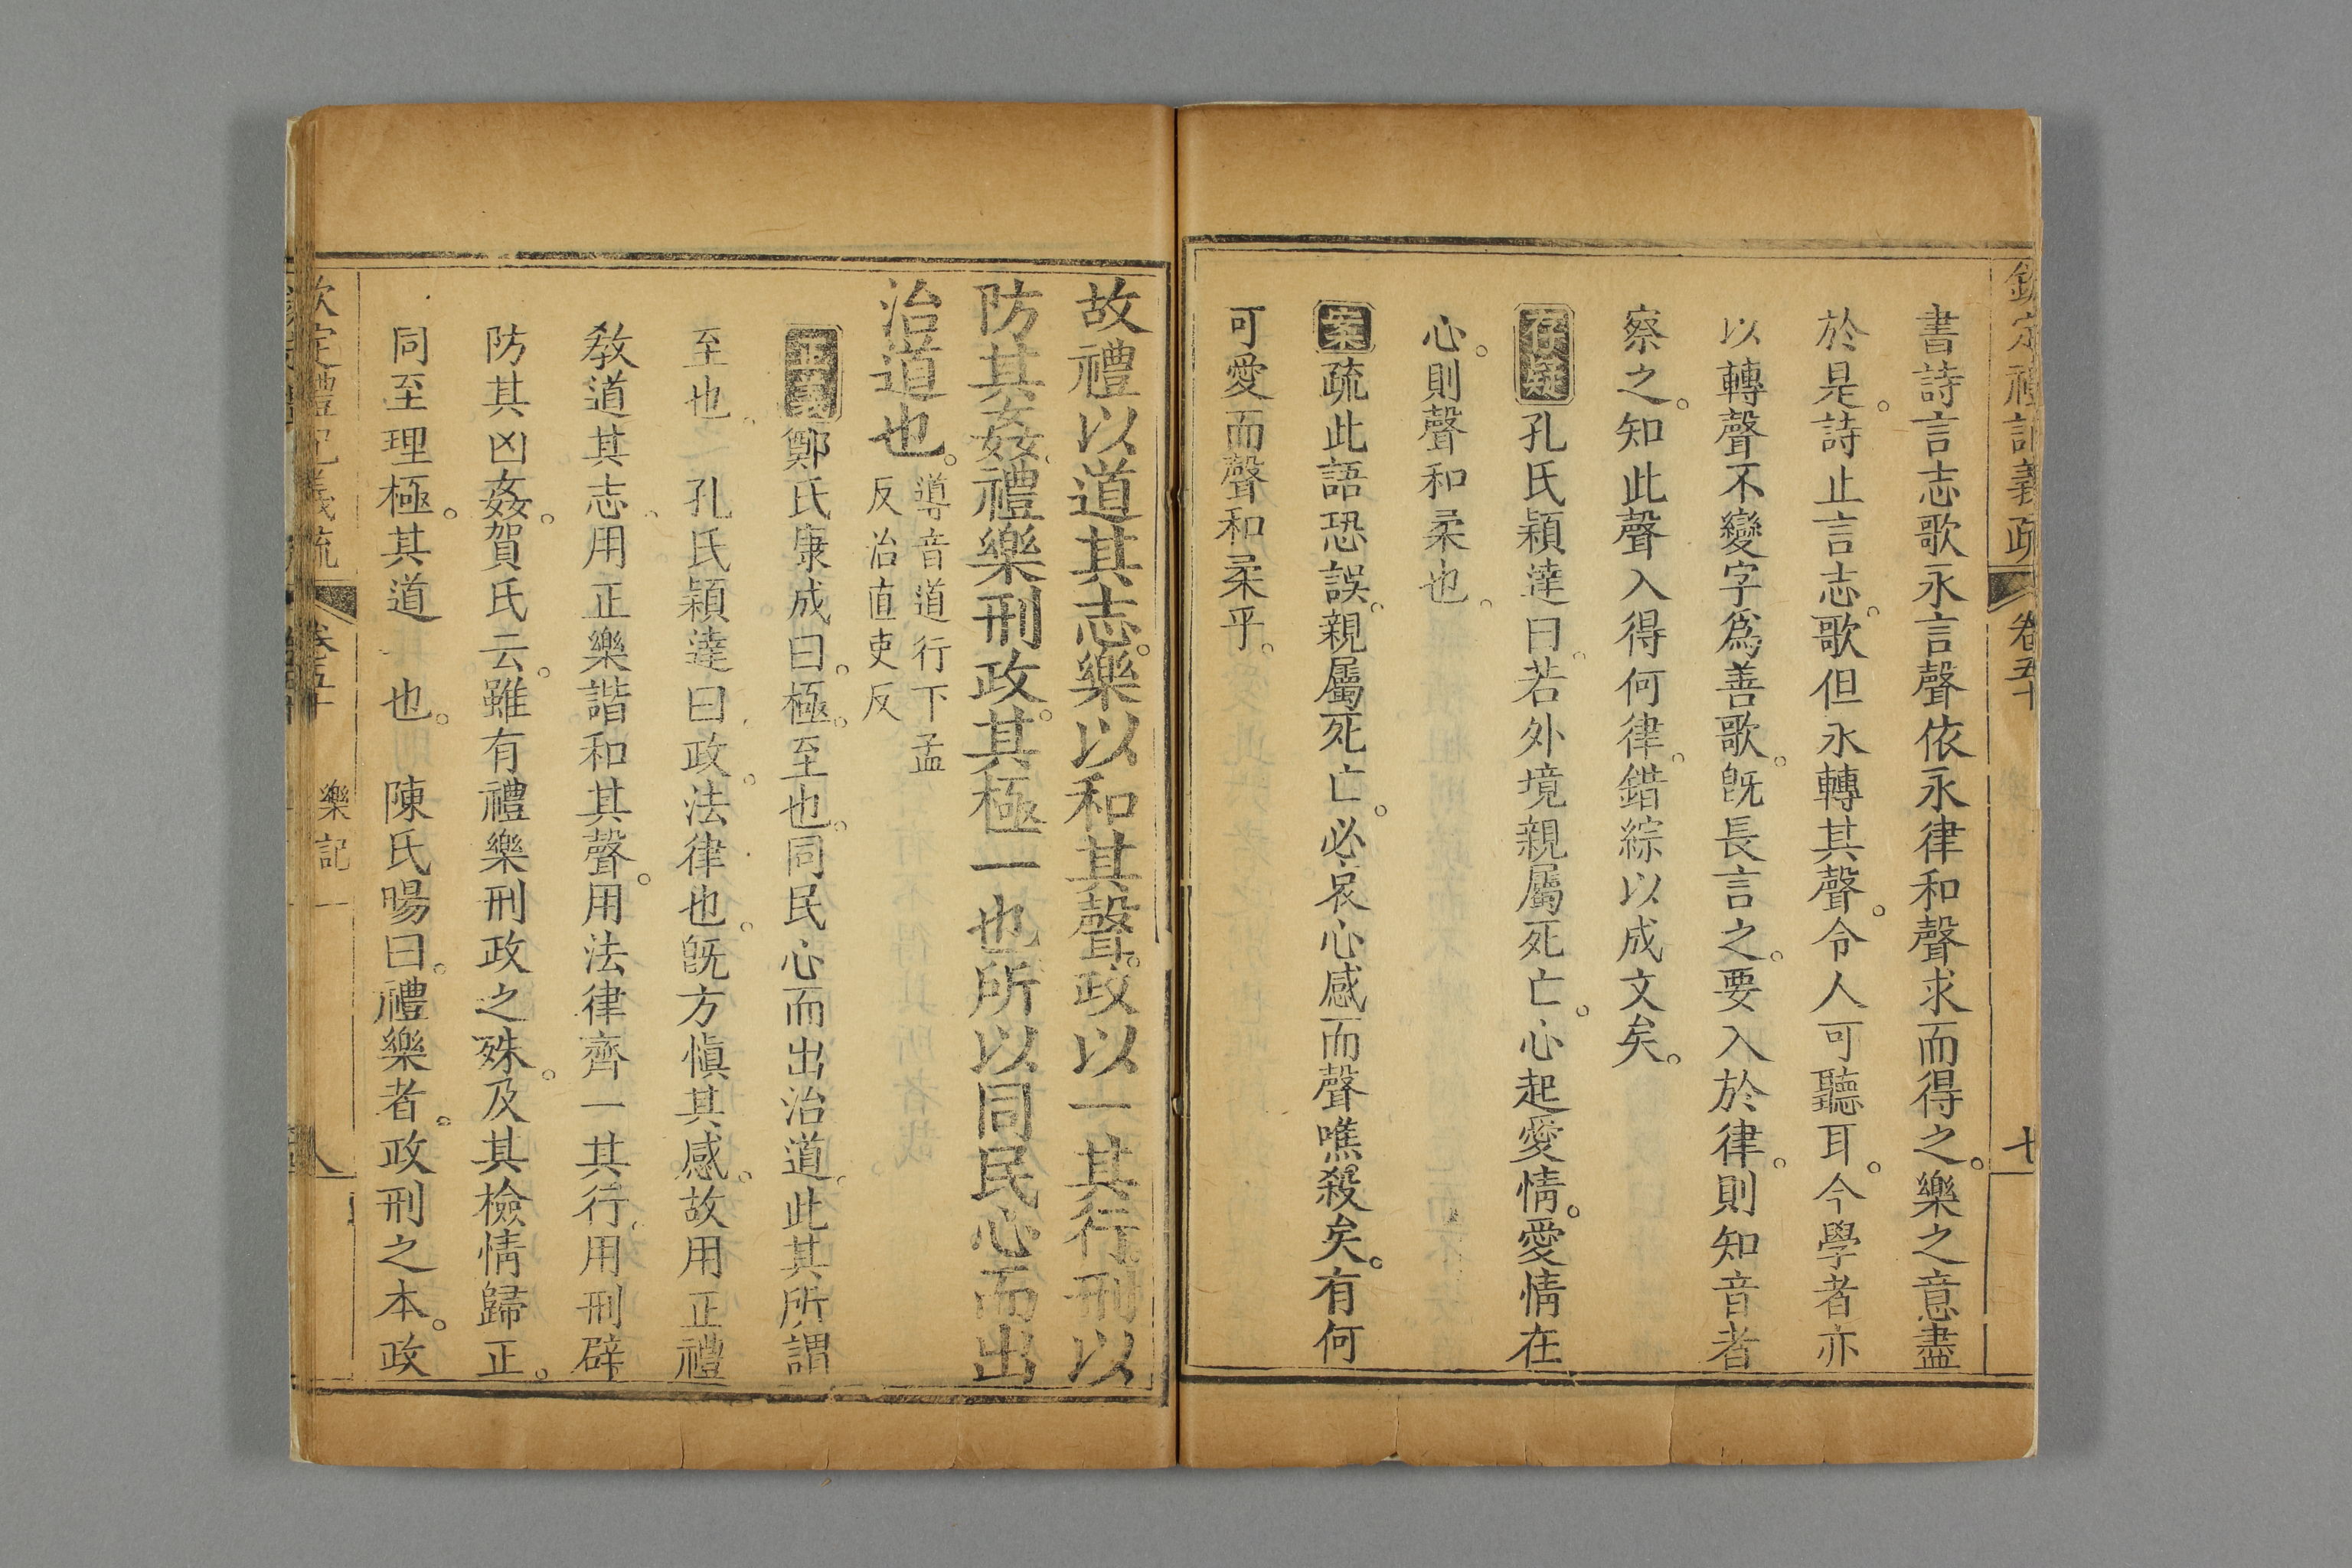 欽定禮記義疏 卷五十 七
書詩言志歌永言聲依永律和聲求而得之。樂之意盡
於是。詩止言志。歌但永轉其聲。令人可聽耳。今學者亦
以轉聲不變字爲善歌。旣長言之。要入於律。則知音者
察之。知此聲入得何律。錯綜以成文矣。
存疑孔氏穎達曰。若外境親屬死亡。心起愛情。愛情在
心。則聲和柔也。
案疏此語恐誤。親屬死亡。必哀心感而聲噍殺矣。有何
可愛而聲和柔乎。
故禮以道其志。樂以和其聲。政以一其行刑以
防其姦。禮樂刑政。其極一也。所以同民心而出
治道也。導音道行下孟
反治直吏反
正義鄭氏康成曰。極。至也。同民心而出治道。此其所謂
至也。 孔氏穎達曰。政。法律也。旣方愼其感。故用正禮
敎道其志。用正樂諧和其聲。用法律齊一其行。用刑辟
防其凶姦。賀氏云。雖有禮樂刑政之殊。及其檢情歸正。
同至理極。其道 也。 陳氏暘曰。禮樂者。政刑之本。政
欽定禮記義疏 卷五十 樂記一 八